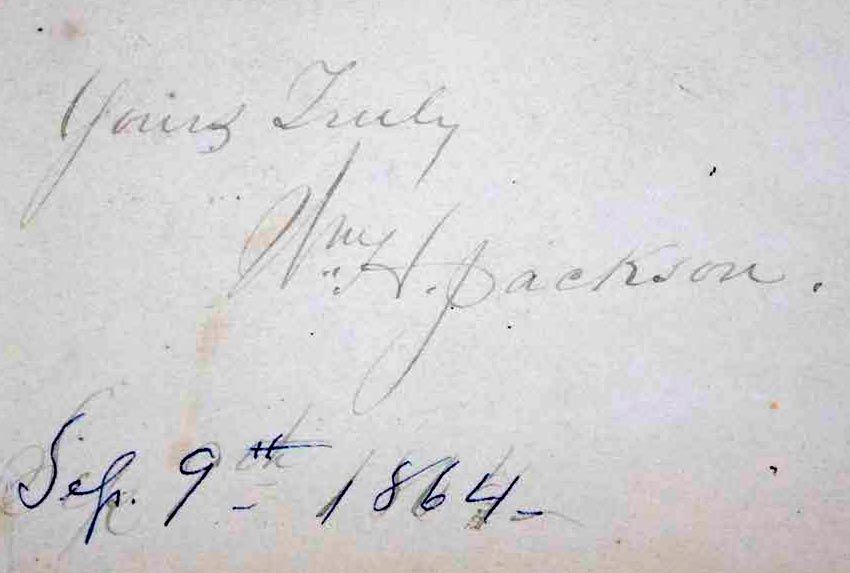 Yours Truly
Wm H. Jackson.
Sep. 9th 1864